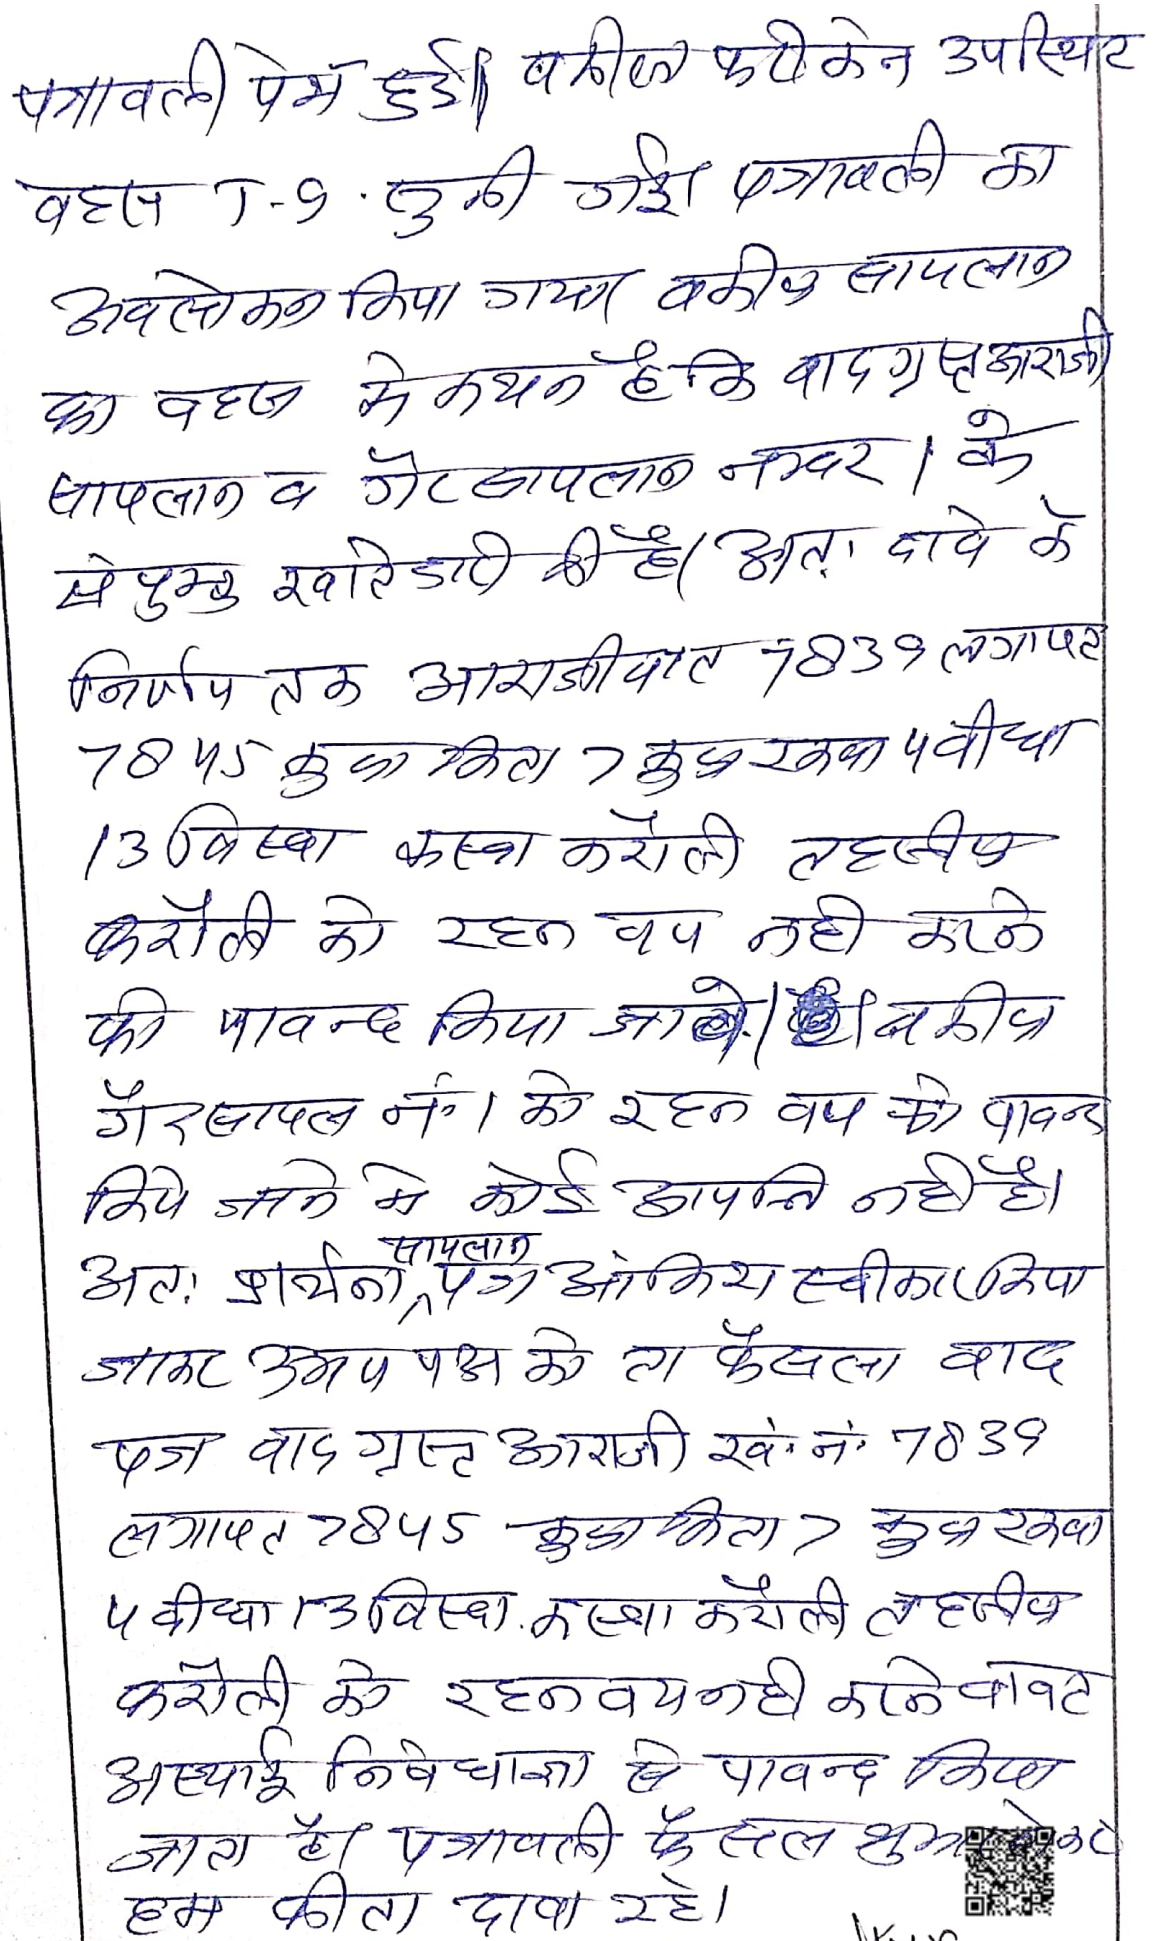 पत्रावली पेश हुई। वकील फरीकेन उपस्थित
वहस T-9. सुनी गई। पत्रावली का
अवलोकन किया गया। वकील सायलान
का वहस मे कथन है कि वादग्रस्त आराजी
सायलान व गैरसायलान नम्बर 1 के
संयुक्त खातेदारी की है। अतः दावे के
निर्णय तक आराजीयात 7839 लगायत
7845 कुल किता 7 कुल रकवा 4 वीघा
13 विस्वा कस्वा करौली तहसील
करौली को रहन वय नही करने
को पावन्द किया जावे। वकील
गैरसायल नं. 1 को रहन वय को पावन्द
किये जाने मे कोई आपत्ति नही है।
अतः प्रार्थना पत्र सायलान आंशिक स्वीकार किया
जाकर उभय पक्ष को ता फैसला वाद
पत्र वादग्रस्त आराजी खं. नं. 7839
लगायत 7845 कुल किता 7 कुल रकवा
4 वीघा 13 विस्वा. कस्वा करौली तहसील
करौली को रहन वय नही करने वावत
अस्थाई निषेधाज्ञा से पावन्द किया
जाता है। पत्रावली फैसल शुमार होकर
हम कीता दावा रहे।